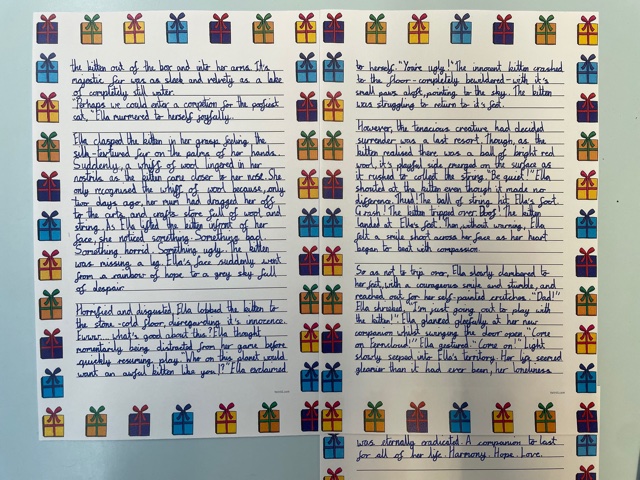 the kitten out of the box and into her arms. It's
majestic fur was as sleek and velvety as a lake
of completely still water.
"Perhaps we could enter a competion for the prettiest
cat," Ella murmered to herself joyfully.
Ella clasped the kitten in her grasp feeling the
silk-textured fur on the palms of her hands.
Suddenly, a whiff of wool lingered in her
nostrils as the kitten came closer to her nose. She
only recognised the whiff of wool because, only
two days ago, her mum had dragged her off
to the arts and crafts store full of wool and
string. As Ella lifted the kitten infront of her
face, she noticed something. Something bad.
Something horrid. Something ugly. The kitten
was missing a leg. Ella's face suddenly went
from a rainbow of hope to a grey sky full
of despair.
Horrified and disgusted, Ella lobbed the kitten to
the stone-cold floor, disregarding it's innocence.
Ewww... what's good about this? Ella thought
momentarily being distracted from her game before
quickly resuming play. "Who on this planet would
want an awful kitten like you!?" Ella exclaimed
to herself. "You're ugly!" The innocent kitten crashed
to the floor - completely bewildered - with it's
small paws aloft, pointing to the sky. The kitten
was struggling to return to it's feet.
However, the tenacious creature had decided
surrender was a last resort. Though, as the
kitten realised there was a ball of bright red
wool, it's playful side emerged on the surface as
it rushed to collect the string. "Be quiet!" Ella
shouted at the kitten even though it made no
difference. Thud! The ball of string hit Ella's foot.
Crash! The kitten tripped over. Boof! The kitten
landed at Ella's feet. Then without warning, Ella
felt a smile shoot across her face as her heart
began to beat with compassion.
So as not to trip over, Ella slowly clambered to
her feet, with a courageous smile and stumble, and
reached out for her self-painted crutches. "Dad!"
Ella shrieked. "I'm just going out to play with
the kitten!" Ella glanced gleefully at her new
companion whilst swinging the door open. "Come
on" Ella gestured. "Come on!" Light
slowly seeped into Ella's territory. Her life seemed
gleamier than it had ever been, her loneliness
was eternally eradicated. A companion to last
for all of her life. Harmony. Hope. Love.